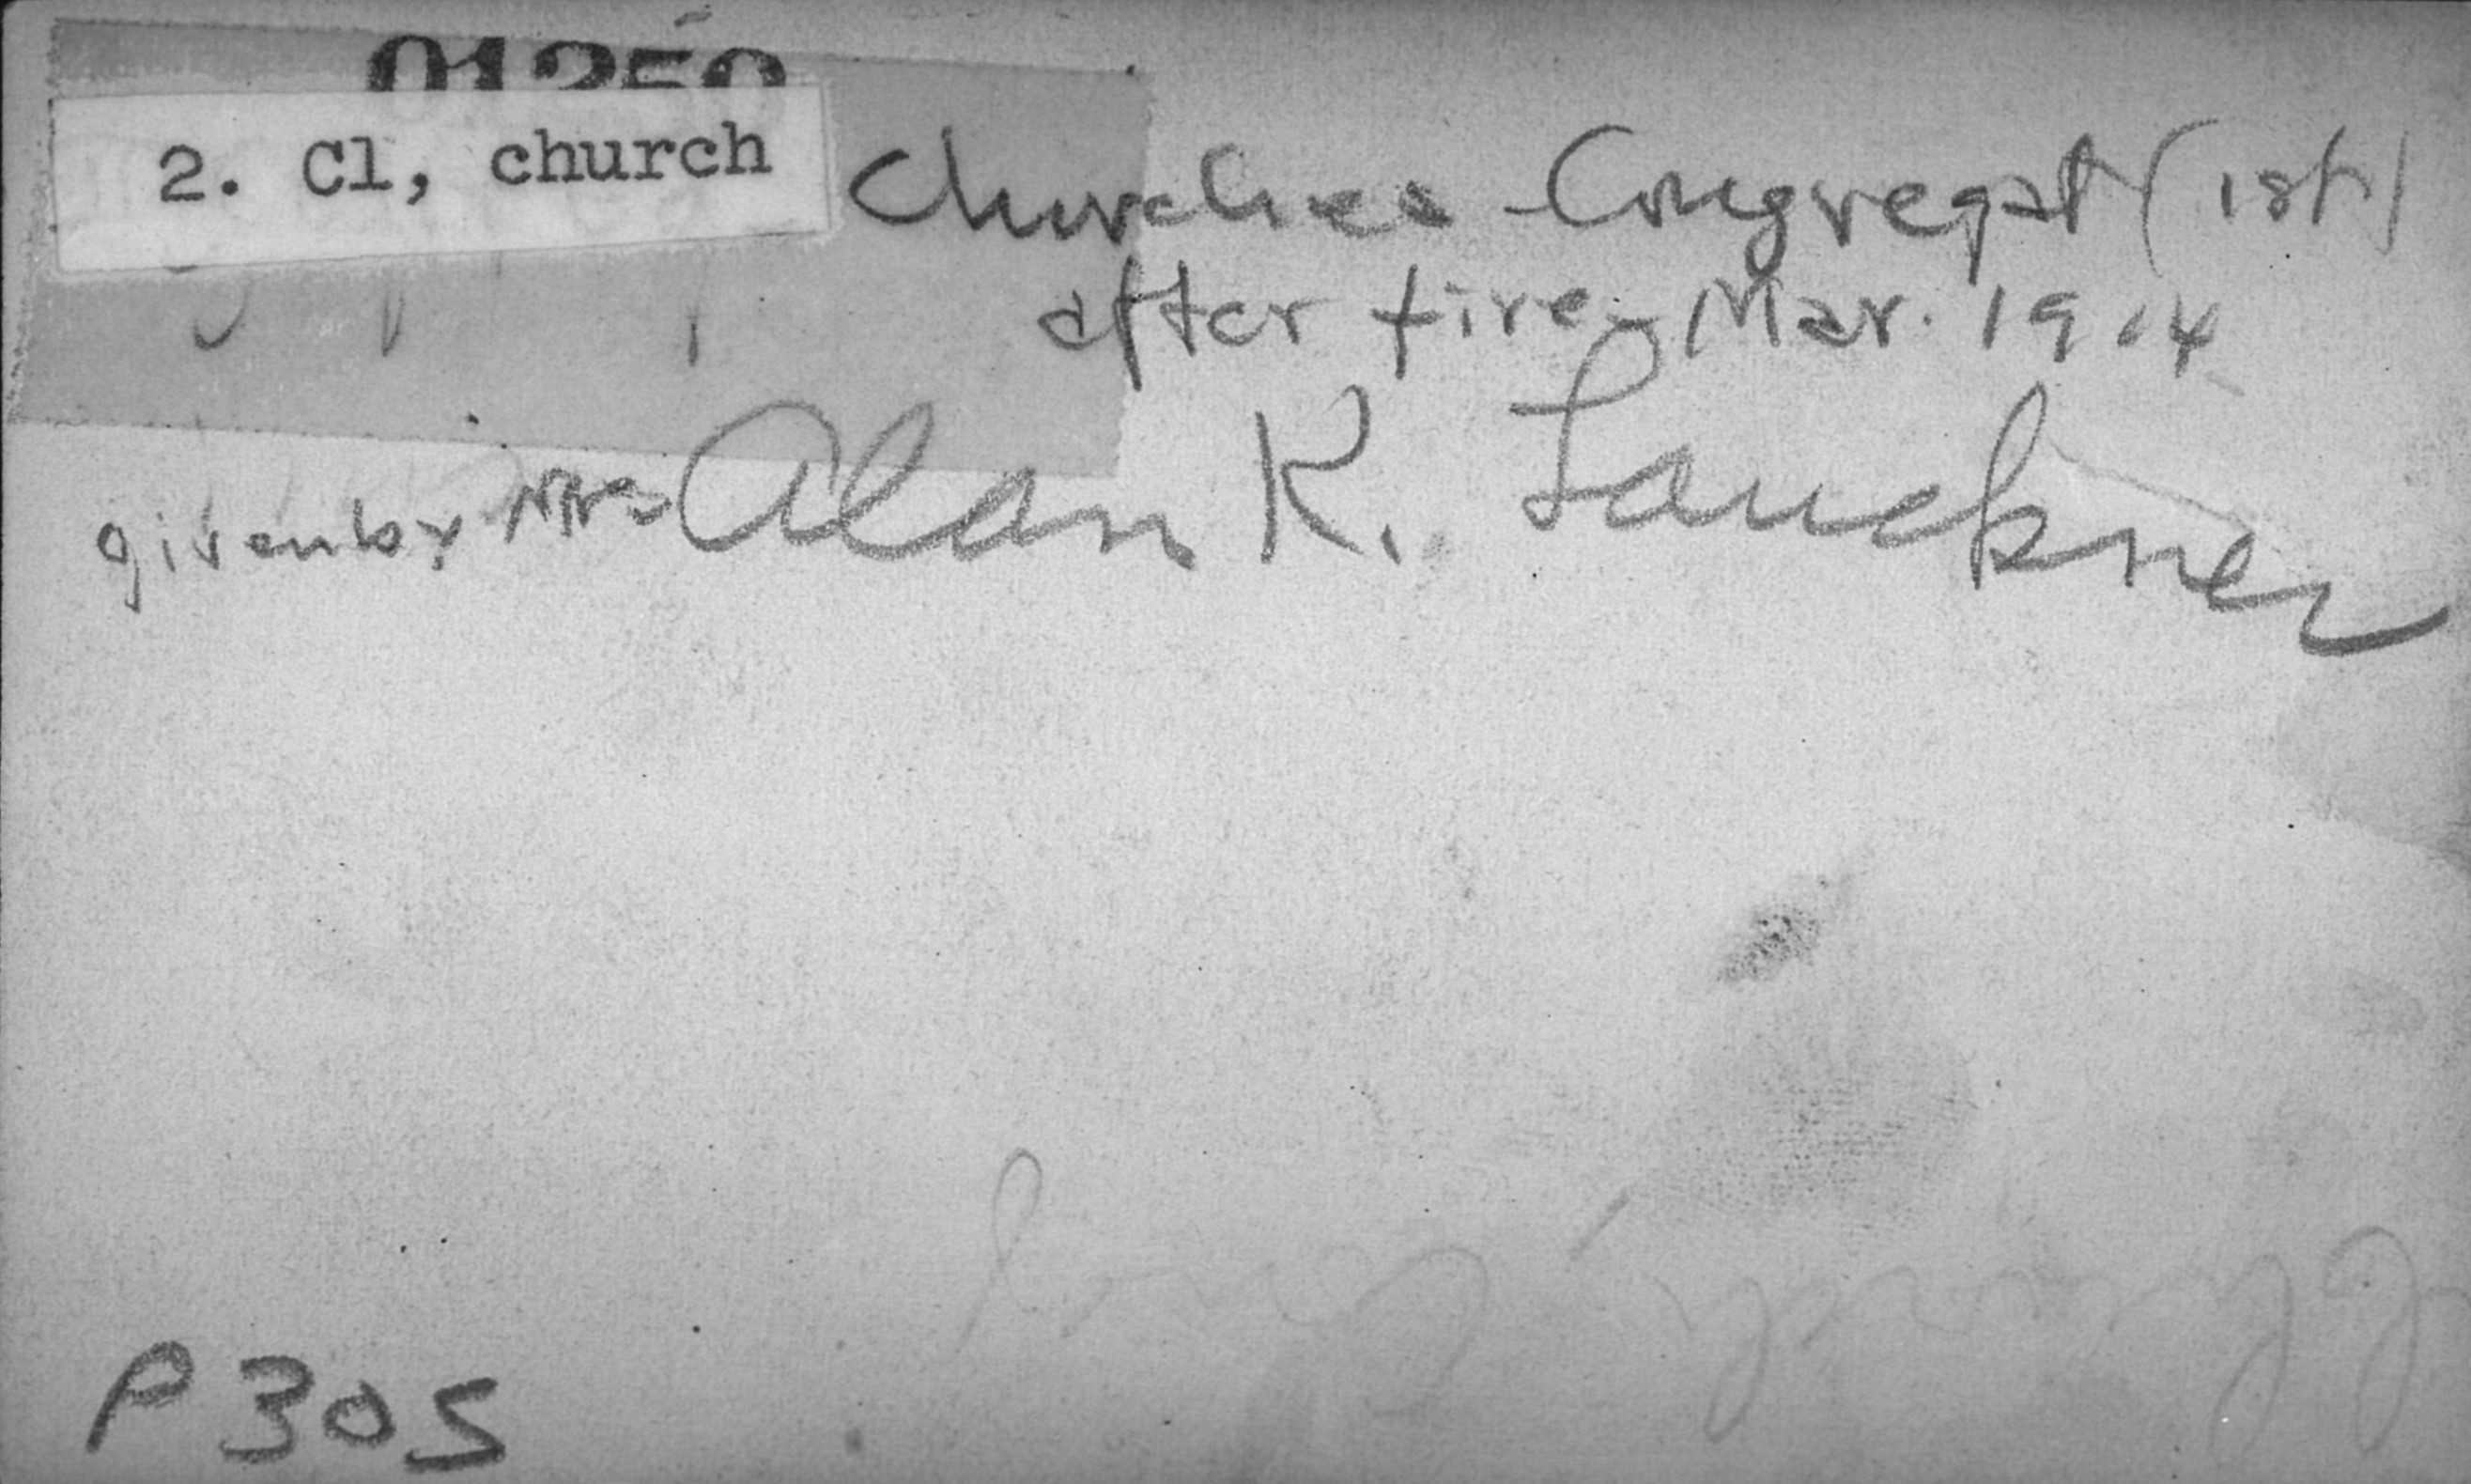 2. Cl, church
Churches - Congregat (1st)
after fire - Mar. 1904
given by Mrs Alan K. Lauckner
P305